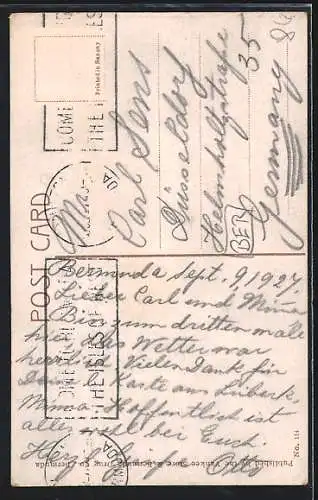 POST CARD
Printed in Saxony
COME
THE
Carl Sens
Düsseldorf
Helmholtzstraße
35
Germany
BER
Bermuda Sept. 9, 1927.
Lieber Carl und Minna
Bin zum dritten male
hier, das Wetter war
herrlich. Vielen Dank für
Deine Karte aus Lübeck.
Minna Hoffentlich ist
alles wohl bei Euch.
Herzl. Grüße Otto
Published by the Yankee Store & Bermuda Drug Co., Bermuda
No. 114